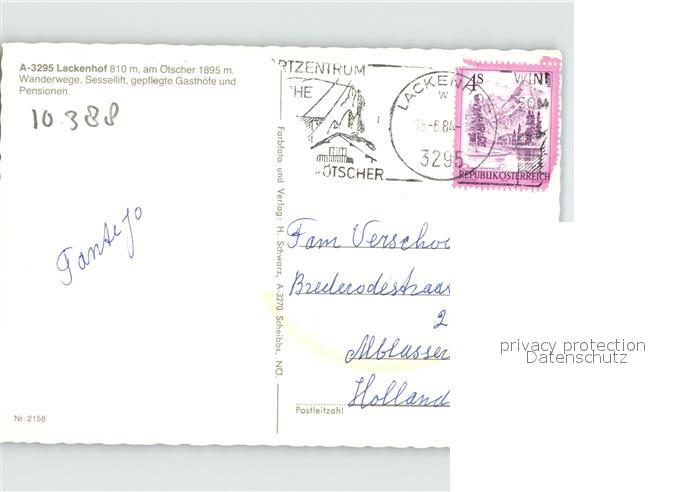 A-3295 Lackenhof 810 m, am Ötscher 1895 m.
Wanderwege, Sessellift, gepflegte Gasthöfe und
Pensionen.
10.388
Tante Jo
Nr. 2158
Farbfoto und Verlag: H. Schwarz, A-3270 Scheibbs, NÖ.
RTZENTRUM
CHE
ÖTSCHER
LACKENHO
W
18.-6.84-
3295
4S
WIN
SOM
REPUBLIK ÖSTERREICH
Fam Verschoo
Brederodestraat
2
Alblasser
Holland
Postleitzahl
privacy protection
Datenschutz